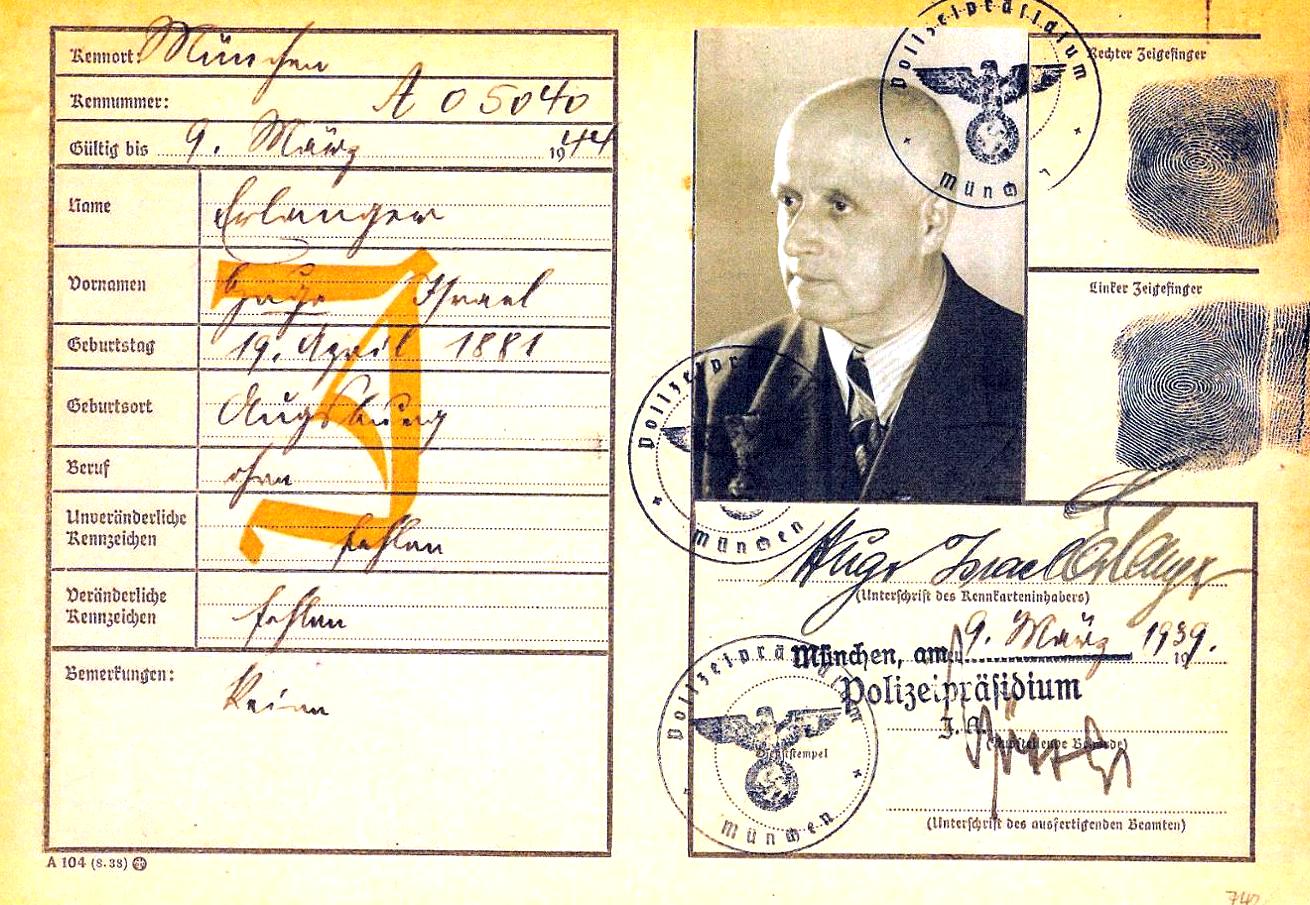 Kennort: München
Kennummer: A 05040
Gültig bis 9. März 1944
Name Erlanger
Vornamen Hugo Israel
Geburtstag 19. April 1881
Geburtsort Augsburg
Beruf ohne
Unveränderliche Kennzeichen fehlen
Veränderliche Kennzeichen fehlen
Bemerkungen: Keine
J
A 104 (8. 38)
Polizeipräsidium
München
Rechter Zeigefinger
Linker Zeigefinger
Polizeipräsidium
München
Hugo Israel Erlanger
(Unterschrift des Kennkarteninhabers)
München, am 9. März 1939.
Polizeipräsidium
J.A.
(Ausstellende Behörde)
Polizeipräsidium
Dienststempel
München
(Unterschrift des ausfertigenden Beamten)